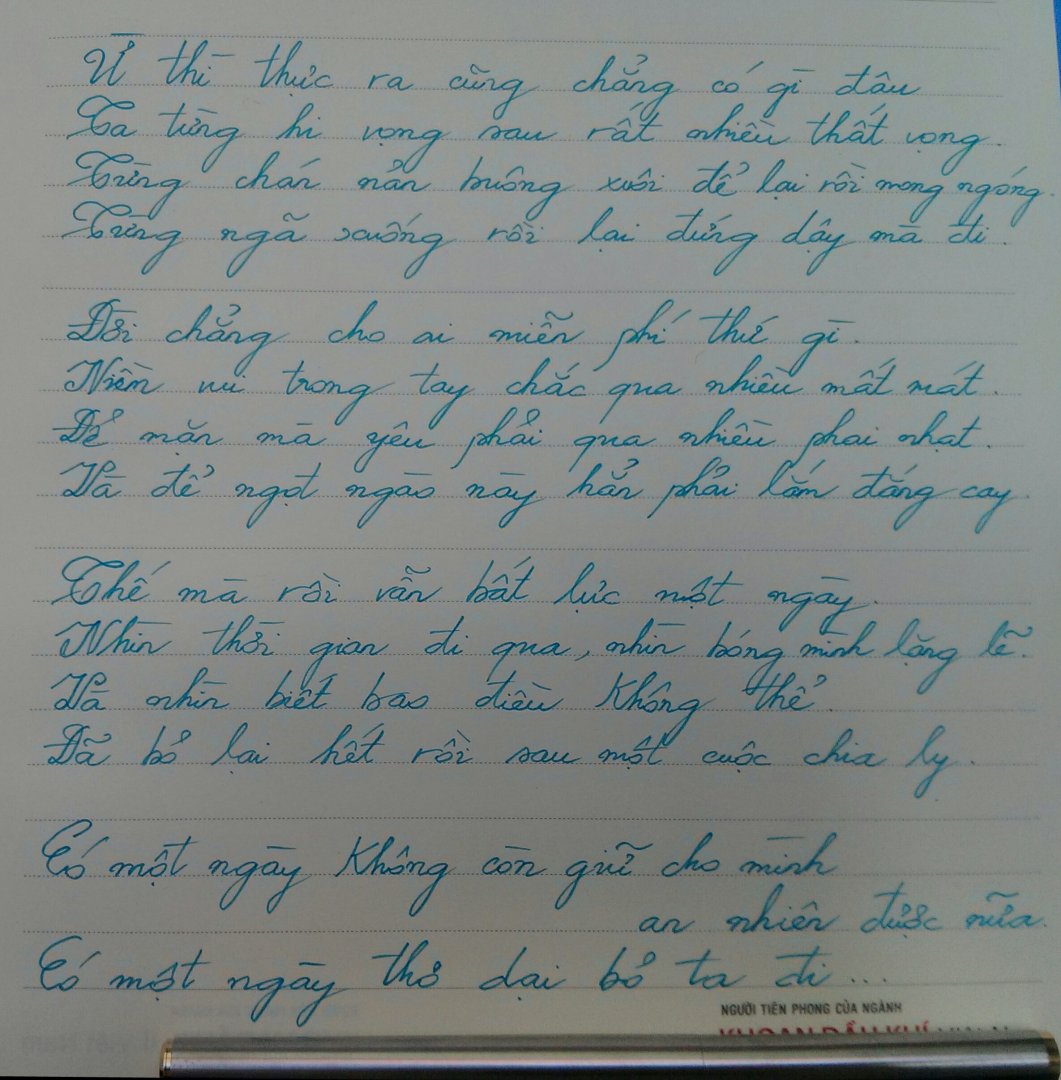 Ừ thì thực ra cũng chẳng có gì đâu
Ta từng hi vọng sau rất nhiều thất vọng.
Từng chán nản buông xuôi để lại rồi mong ngóng.
Từng ngã xuống rồi lại đứng dậy mà đi.
Đời chẳng cho ai miễn phí thứ gì.
Niềm vui trong tay chắc qua nhiều mất mát.
Để mặn mà yêu phải qua nhiều phai nhạt.
Và để ngọt ngào này hẳn phải lắm đắng cay.
Thế mà rồi vẫn bất lực một ngày.
Nhìn thời gian đi qua, nhìn bóng mình lặng lẽ.
Và nhìn biết bao điều không thể.
Đã bỏ lại hết rồi sau một cuộc chia ly.
Có một ngày không còn giữ cho mình
an nhiên được nữa.
Có một ngày thơ dại bỏ ta đi...
NGƯỜI TIÊN PHONG CỦA NGÀNH
KHOAN DẦU KHÍ